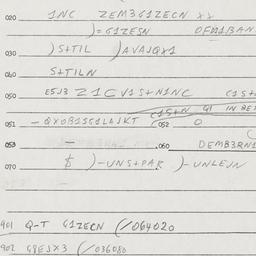 020 1NC ZEM3G1ZECN XX
)=G1ZESN OFM1BAN
030 )S+TIL )AVAJQX1
040 S+TILN
050 E5J3 Z1CV1S+N1NC C1S+
C1S+N Q1 IN BE
051 -QXOB1SG1LAJKT 052 O
053 - 060 DEMB3RN1
070 $ )-UNS+PAR )-UNLEJN
901 Q-T G1ZECN (/064020
902 G8EJX3 (/036080